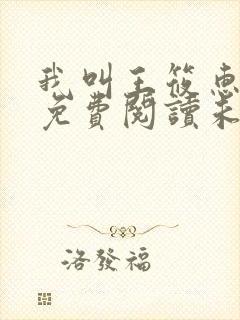 我叫王筱惠
免費閱讀未
洛發福